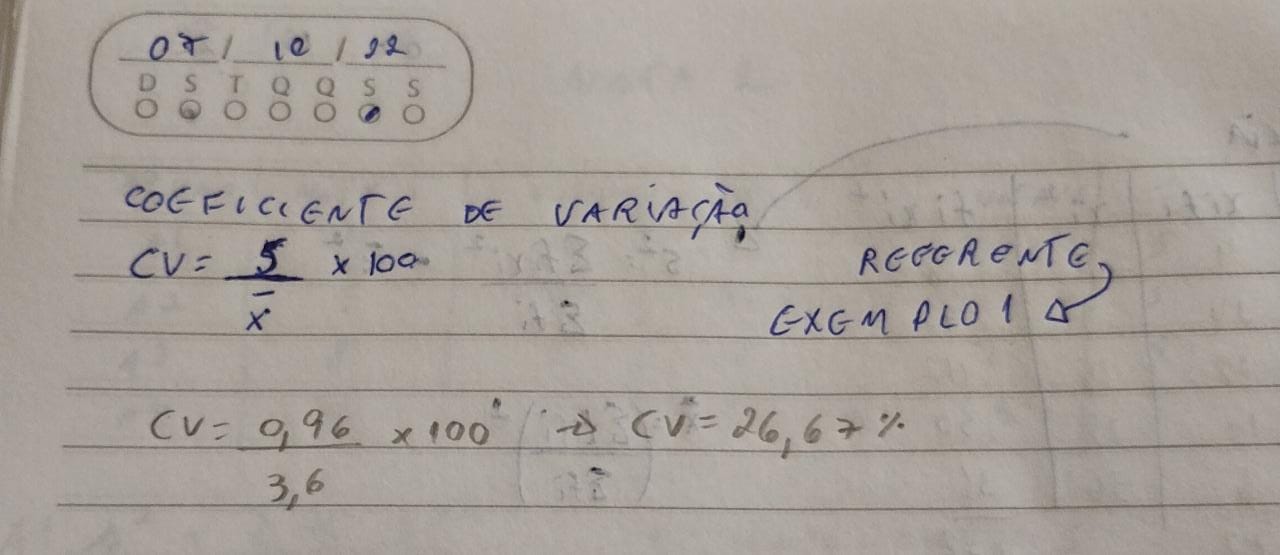 07 / 10 / 22
D S T Q Q S S
COEFICIENTE DE VARIAÇÃO
CV = S x 100
x̄
REFERENTE
EXEMPLO 1
CV = 0,96 x 100 → CV = 26,67 %
3,6